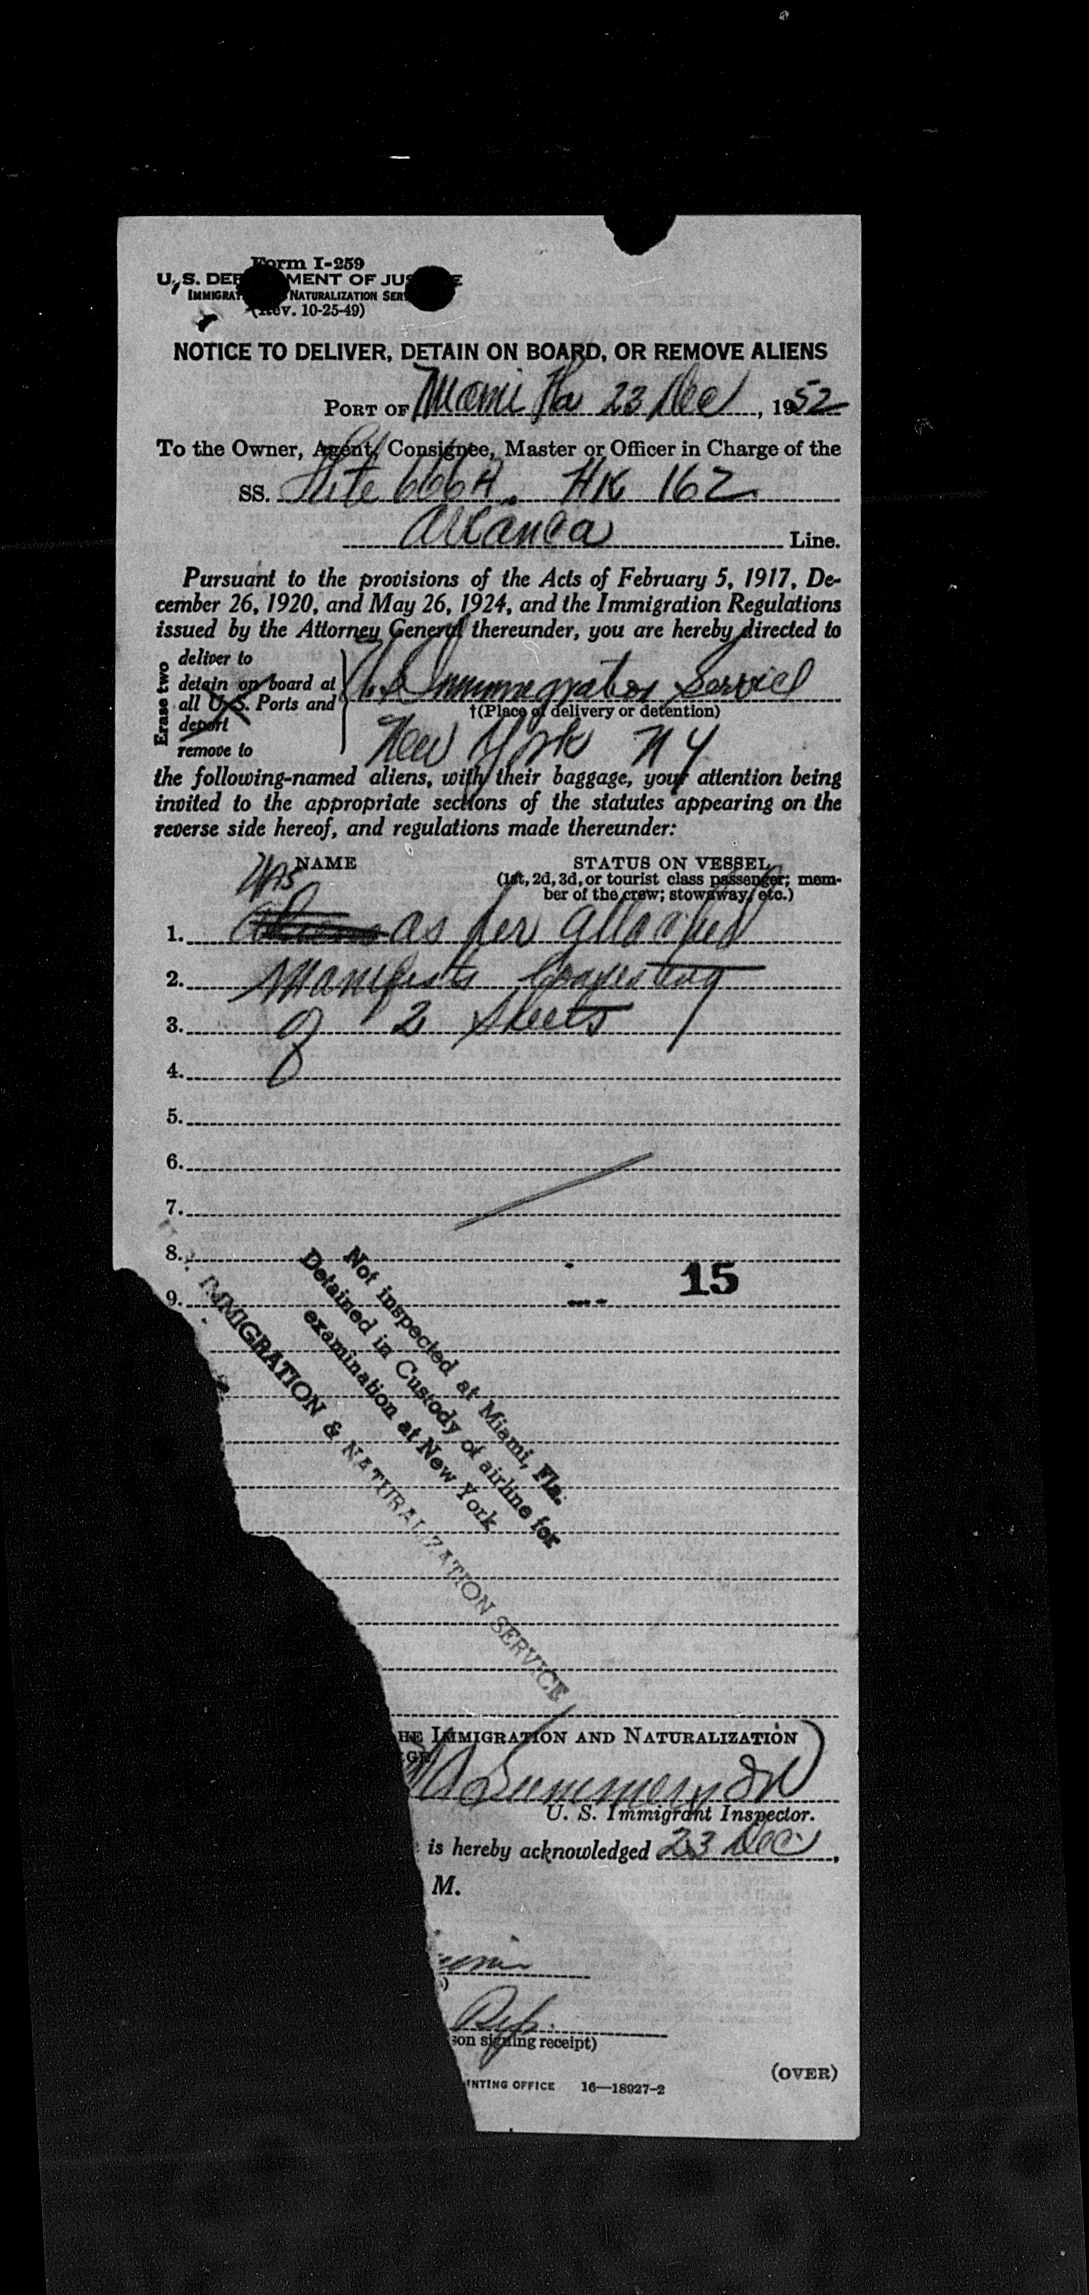 Form I-259
U. S. DEPARTMENT OF JUSTICE
IMMIGRATION NATURALIZATION SERV
(Rev. 10-25-49)
NOTICE TO DELIVER, DETAIN ON BOARD, OR REMOVE ALIENS
PORT OF Miami Fla 23 Dec, 1952
To the Owner, Agent, Consignee, Master or Officer in Charge of the
SS. Flite 666A. HK 162
Avianca Line.
Pursuant to the provisions of the Acts of February 5, 1917, De-
cember 26, 1920, and May 26, 1924, and the Immigration Regulations
issued by the Attorney General thereunder, you are hereby directed to
Erase two
deliver to
detain on board at
all U.S. Ports and
deport
remove to
U.S. Immigration Service
†(Place of delivery or detention)
New York N Y
the following-named aliens, with their baggage, your attention being
invited to the appropriate sections of the statutes appearing on the
reverse side hereof, and regulations made thereunder:
NAME STATUS ON VESSEL
(1st, 2d, 3d, or tourist class passenger; mem-
ber of the crew; stowaway, etc.)
1. Aliens as per attached
2. Manifests Consisting
3. of 2 sheets
4.
5.
6.
7.
8.
9.
15
Not inspected at Miami, Fla.
Detained in Custody of airline for
examination at New York
IMMIGRATION & NATURALIZATION SERVICE
HE IMMIGRATION AND NATURALIZATION
GE
U. S. Immigrant Inspector.
is hereby acknowledged 23 Dec,
M.
Rep.
son signing receipt)
INTING OFFICE 16—18927-2
(OVER)